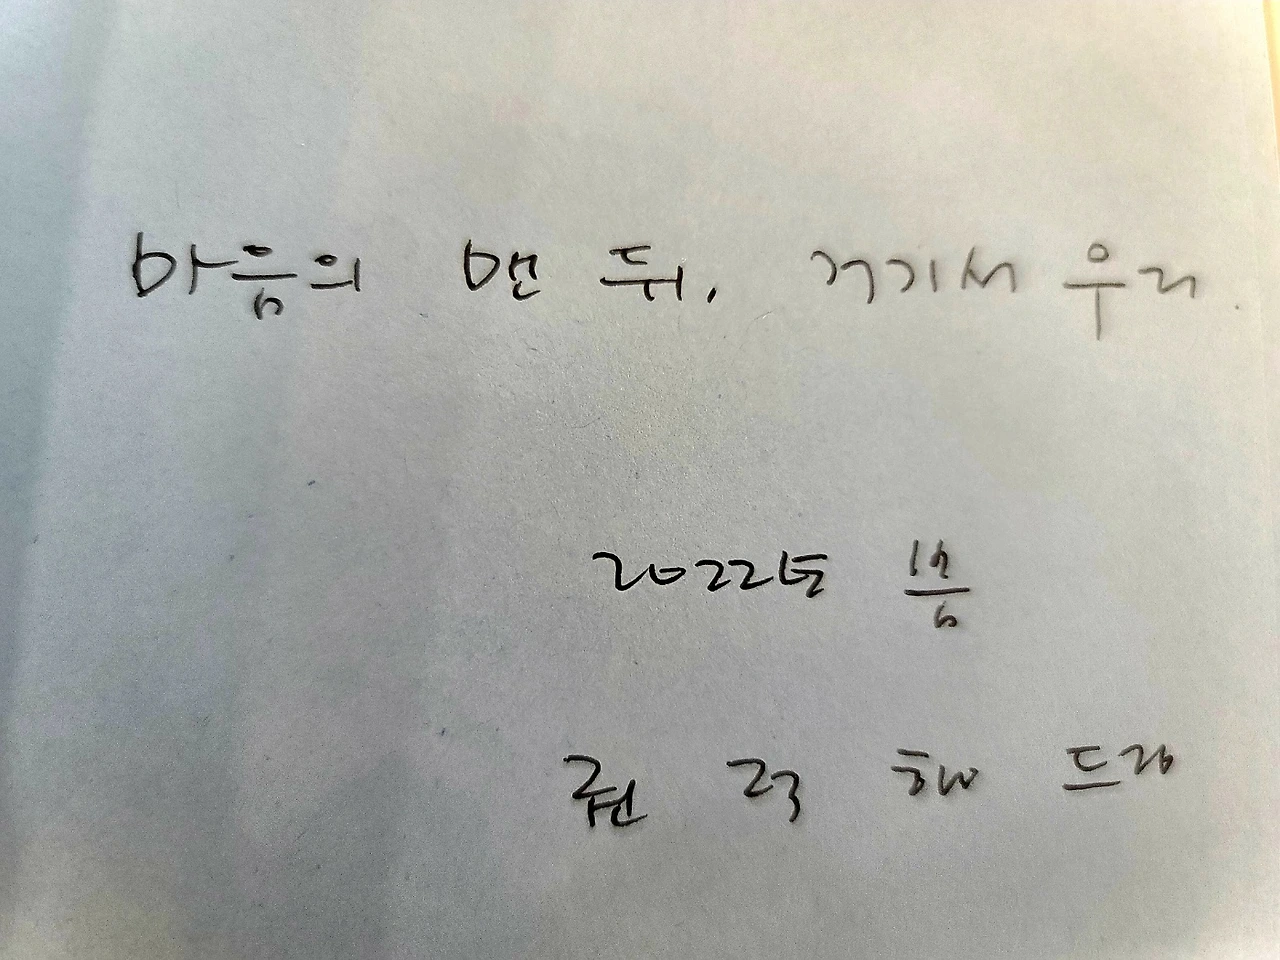 마음의 맨 뒤, 거기서 우리.
2022년 봄
권 드림